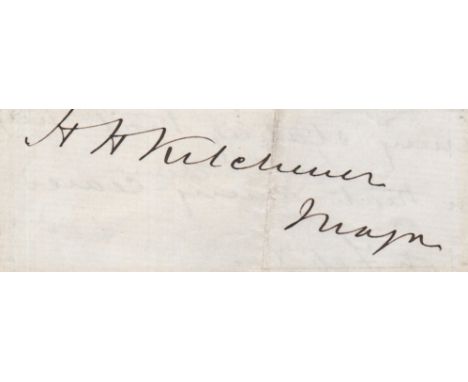 H H Kitchener
Major